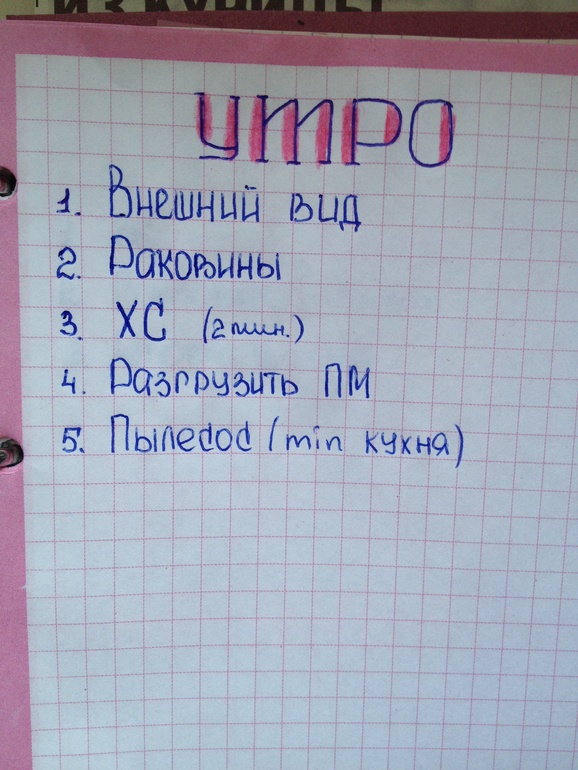 ИЗ КУРИЦЫ
УТРО
1. Внешний вид
2. Раковины
3. ХС (2 мин.)
4. Разгрузить ПМ
5. Пылесос (min кухня)